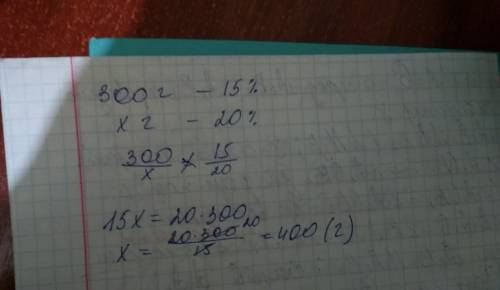 300 г – 15%
х г – 20%
300/х × 15/20
15х = 20·300
х = 20·300/15 20 = 400 (г)